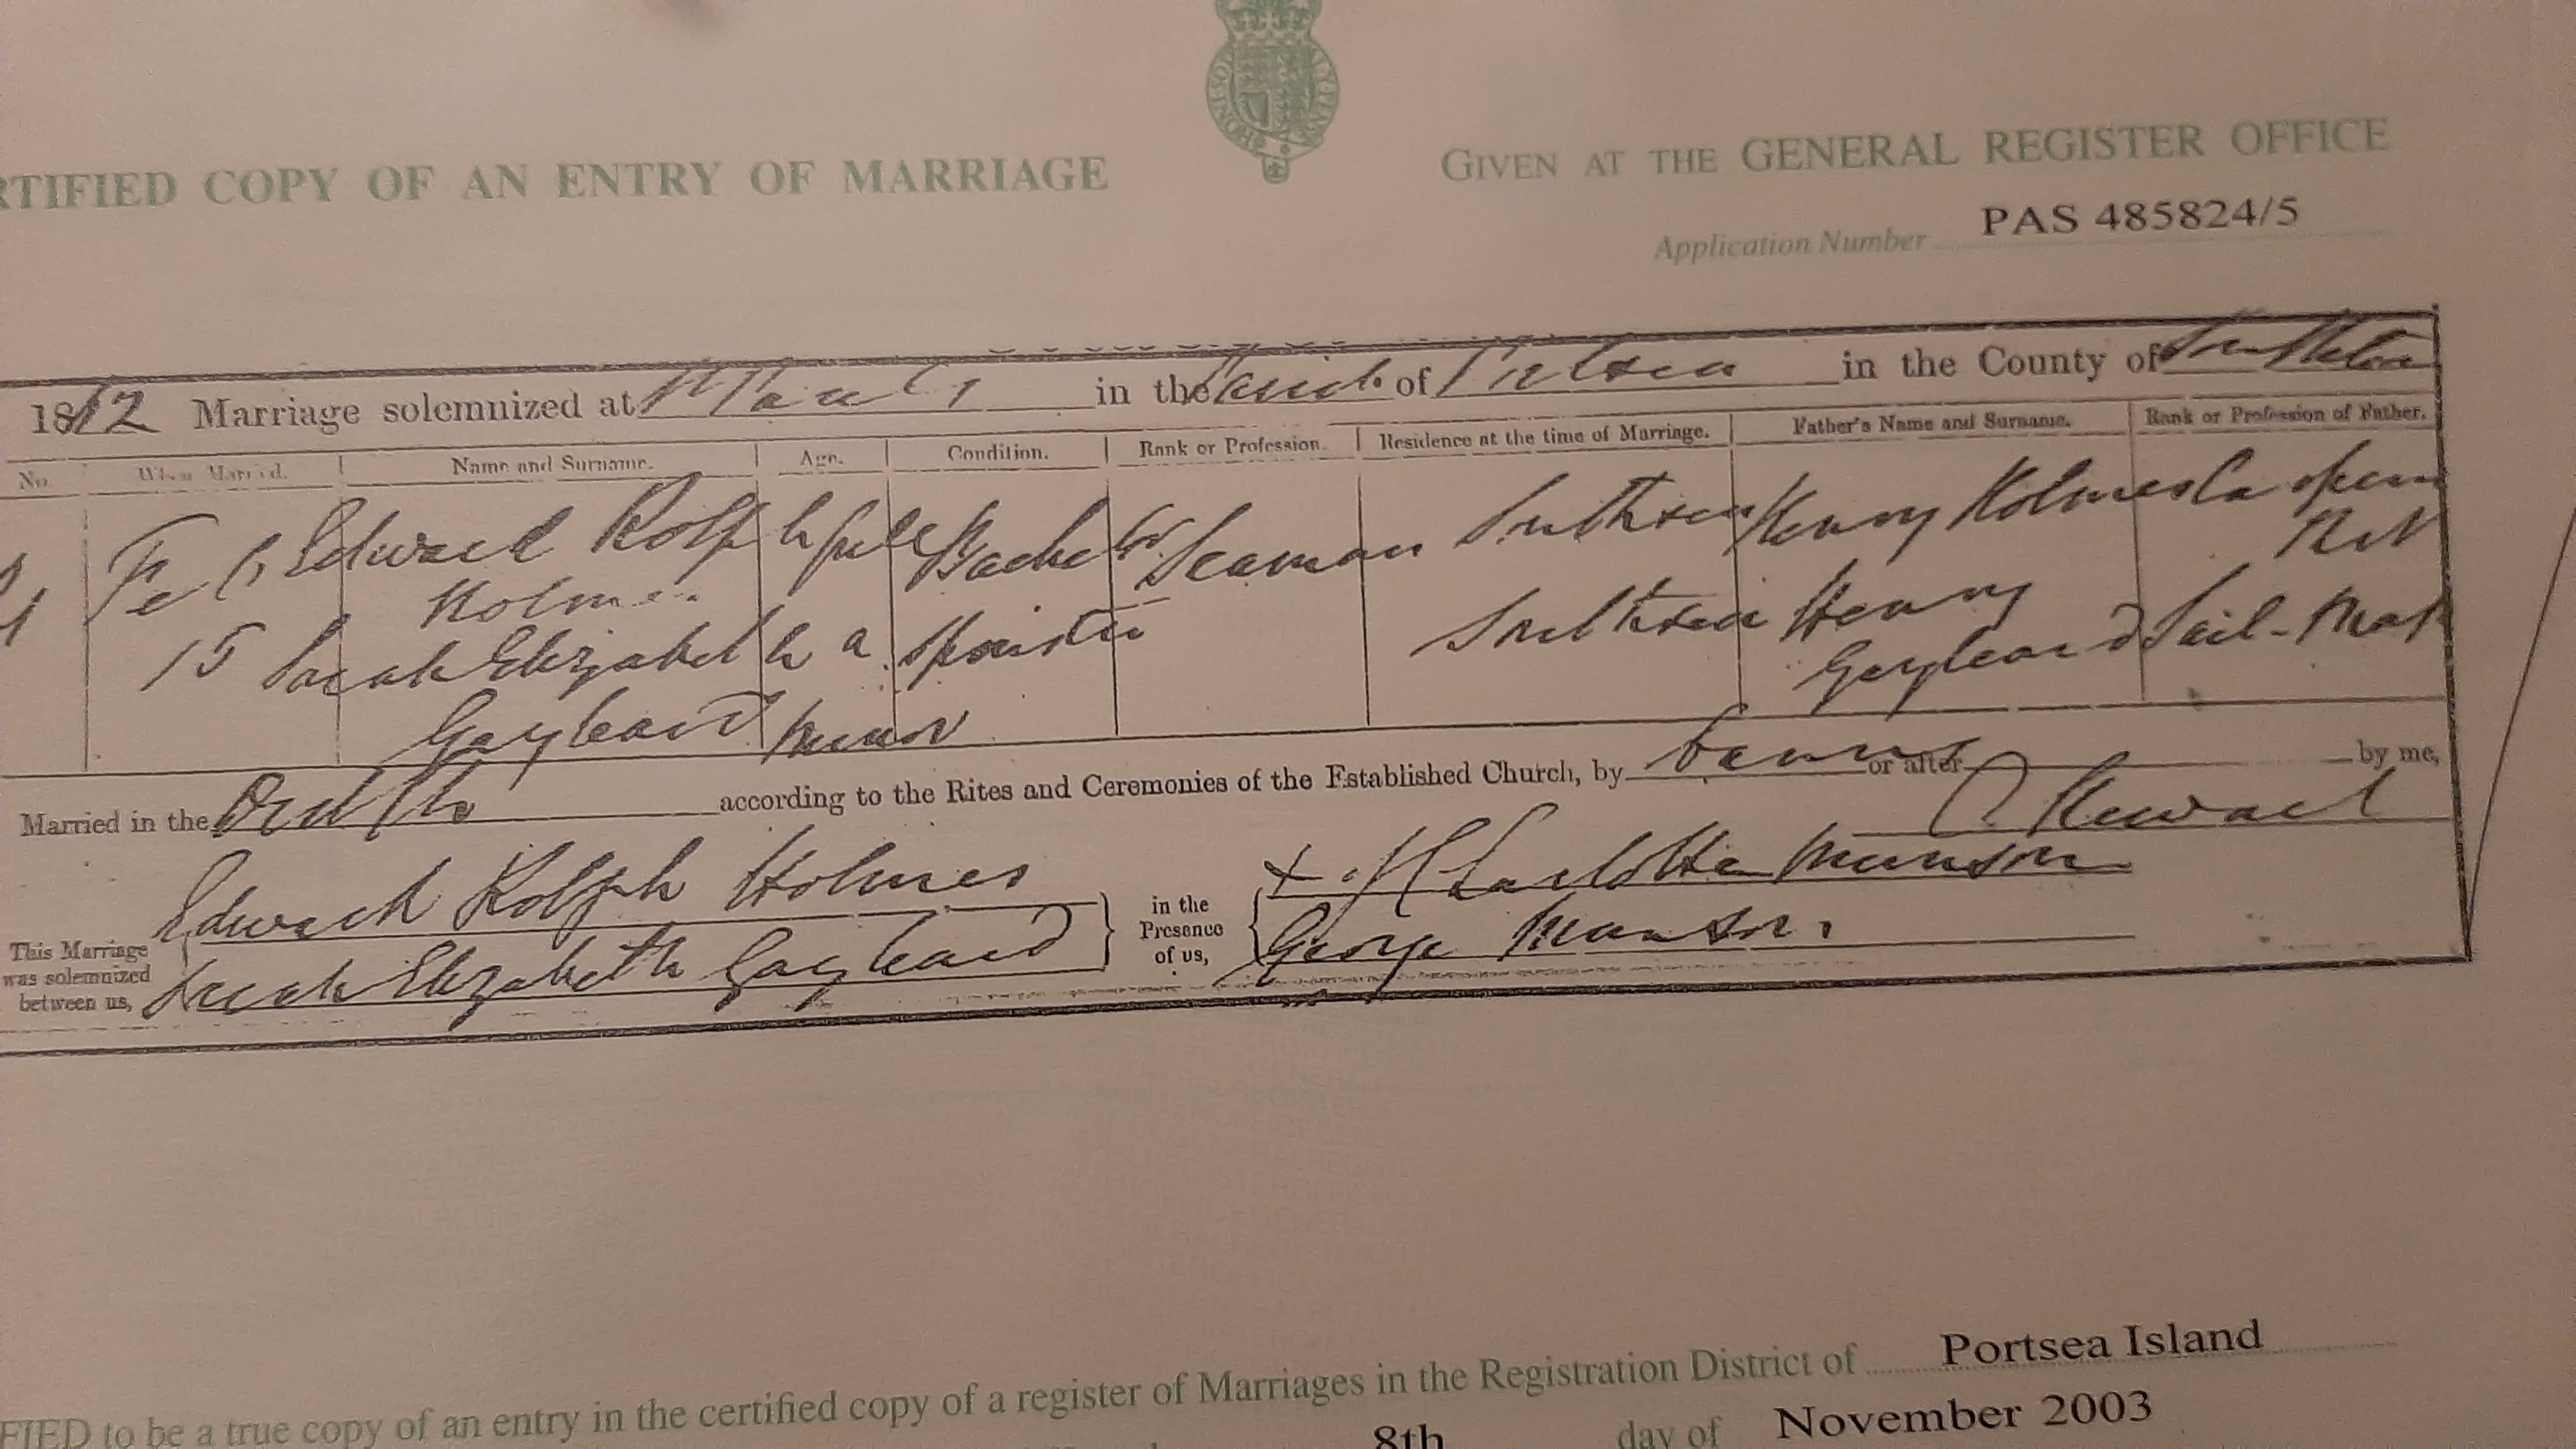 RTIFIED COPY OF AN ENTRY OF MARRIAGE
GIVEN AT THE GENERAL REGISTER OFFICE
Application Number PAS 485824/5
Marriage solemnized at in the Parish of Portsea in the County of
No. When Married. Name and Surname. Age. Condition. Rank or Profession. Residence at the time of Marriage. Father's Name and Surname. Rank or Profession of Father.
Edward Rolph full Bachelor Seaman Southsea Henry Holmes
Holmes RN
15 Sarah Elizabeth a Spinster Southsea Henry Sail-Mak
Gaybeard minor Gaybeard
Married in the according to the Rites and Ceremonies of the Established Church, by banns or after by me,
Edward Rolph Holmes
Sarah Elizabeth Gaybeard
This Marriage
was solemnized
between us,
in the
Presence
of us,
X Charlotte Munson
George Munson.
FIED to be a true copy of an entry in the certified copy of a register of Marriages in the Registration District of Portsea Island
8th day of November 2003